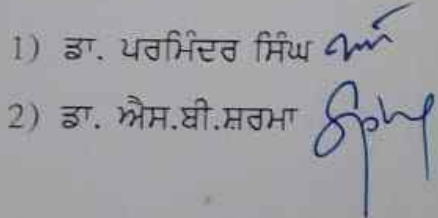 1) ਡਾ. ਪਰਮਿੰਦਰ ਸਿੰਘ
2) ਡਾ. ਐਸ.ਬੀ.ਸ਼ਰਮਾ